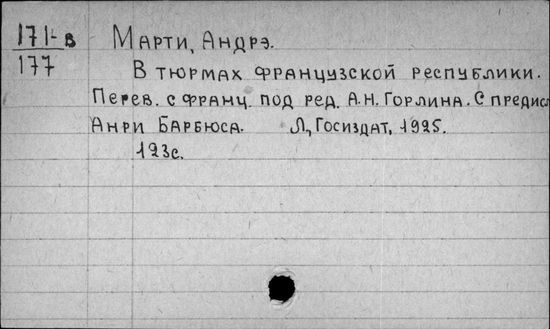 171-в
177
Марти, Андрэ.
В тюрмах французской республики.
Перев. с франц. под ред. А.Н. Горлина. С предисл
Анри Барбюса. Л, Госиздат, 1925.
123с.